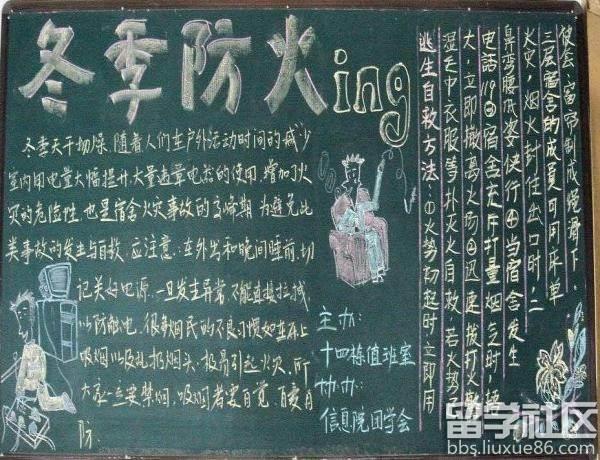 冬季防火ing
冬季天干物燥,随着人们在户外活动时间的减少
室内用电量大幅提升,大量违章电器的使用,增加了火
灾的危险性,也是宿舍火灾事故的高峰期,为避免此
类事故的发生与自救,应注意:在外出和晚间睡前,切
记关好电源,一旦发生异常,不能直接扑灭,
以防触电,很多烟民的不良习惯如在床上
吸烟以及乱扔烟头,极易引起火灾,所
大家一定要禁烟,吸烟者要自觉,自爱自
防.
主办:
十四栋值班室
协办:
信息院团学会
逃生自救方法:①火势初起时立即用
湿毛巾衣服等扑灭火自救,若火势
大,立即撤离火场②迅速拨打火警
电话119③宿舍充斥打量烟气时,捂
鼻弯腰低姿快行④当宿舍发生
火灾,烟火封住出口时,二
三层宿舍的成员可用床单
窗帘制成绳滑下
留学社区
bbs.liuxue86.com